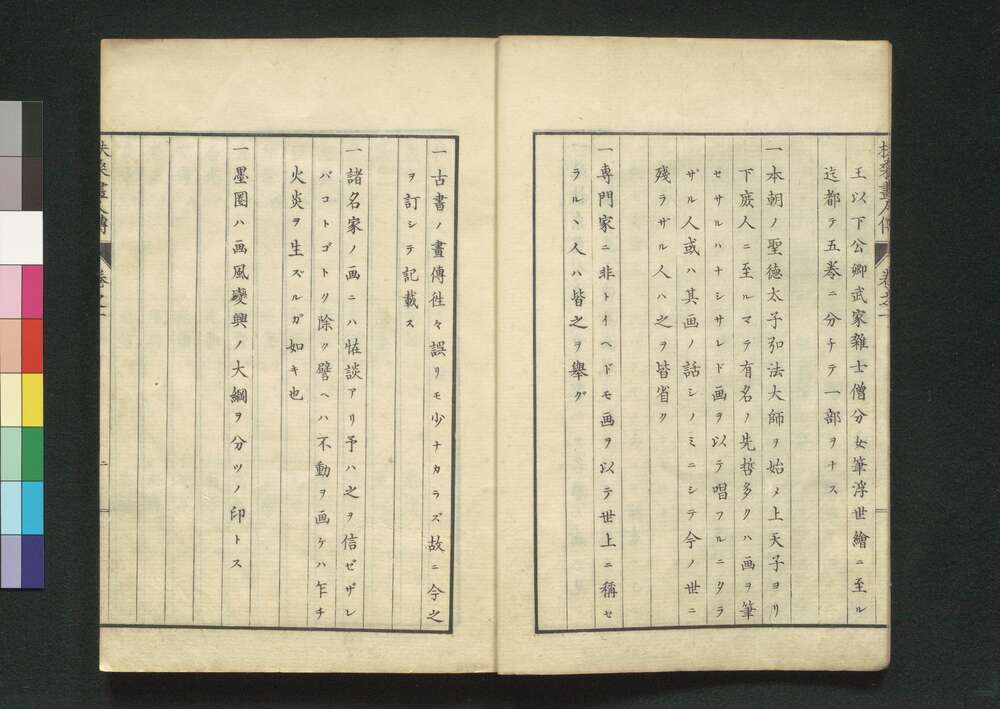 王以下公卿武家雜士僧分女筆浮世繪ニ至ル
迄都テ五巻ニ分チテ一部ヲナス
一本朝ノ聖德太子弘法大師ヲ始メ上天子ヨリ
下庶人ニ至ルマテ有名ノ先哲多クハ画ヲ筆
セサルハナシサレド画ヲ以テ唱フルニタラ
ザル人或ハ其画ノ話シノミニシテ今ノ世ニ
殘ラザル人ハ之ヲ皆省ク
一専門家ニ非トイヘドモ画ヲ以テ世上ニ稱セ
ラルヽ人ハ皆之ヲ舉グ
一古書ノ畫傳徃々誤リモ少ナカラズ故ニ今之
ヲ訂シテ記載ス
一諸名家ノ画ニハ恠談アリ予ハ之ヲ信ゼザレ
バコトゴトク除ク譬ヘハ不動ヲ画ケハ乍チ
火炎ヲ生ズルガ如キ也
一墨圏ハ画風變興ノ大綱ヲ分ツノ印トス
扶桑畫人傳
卷之一
二